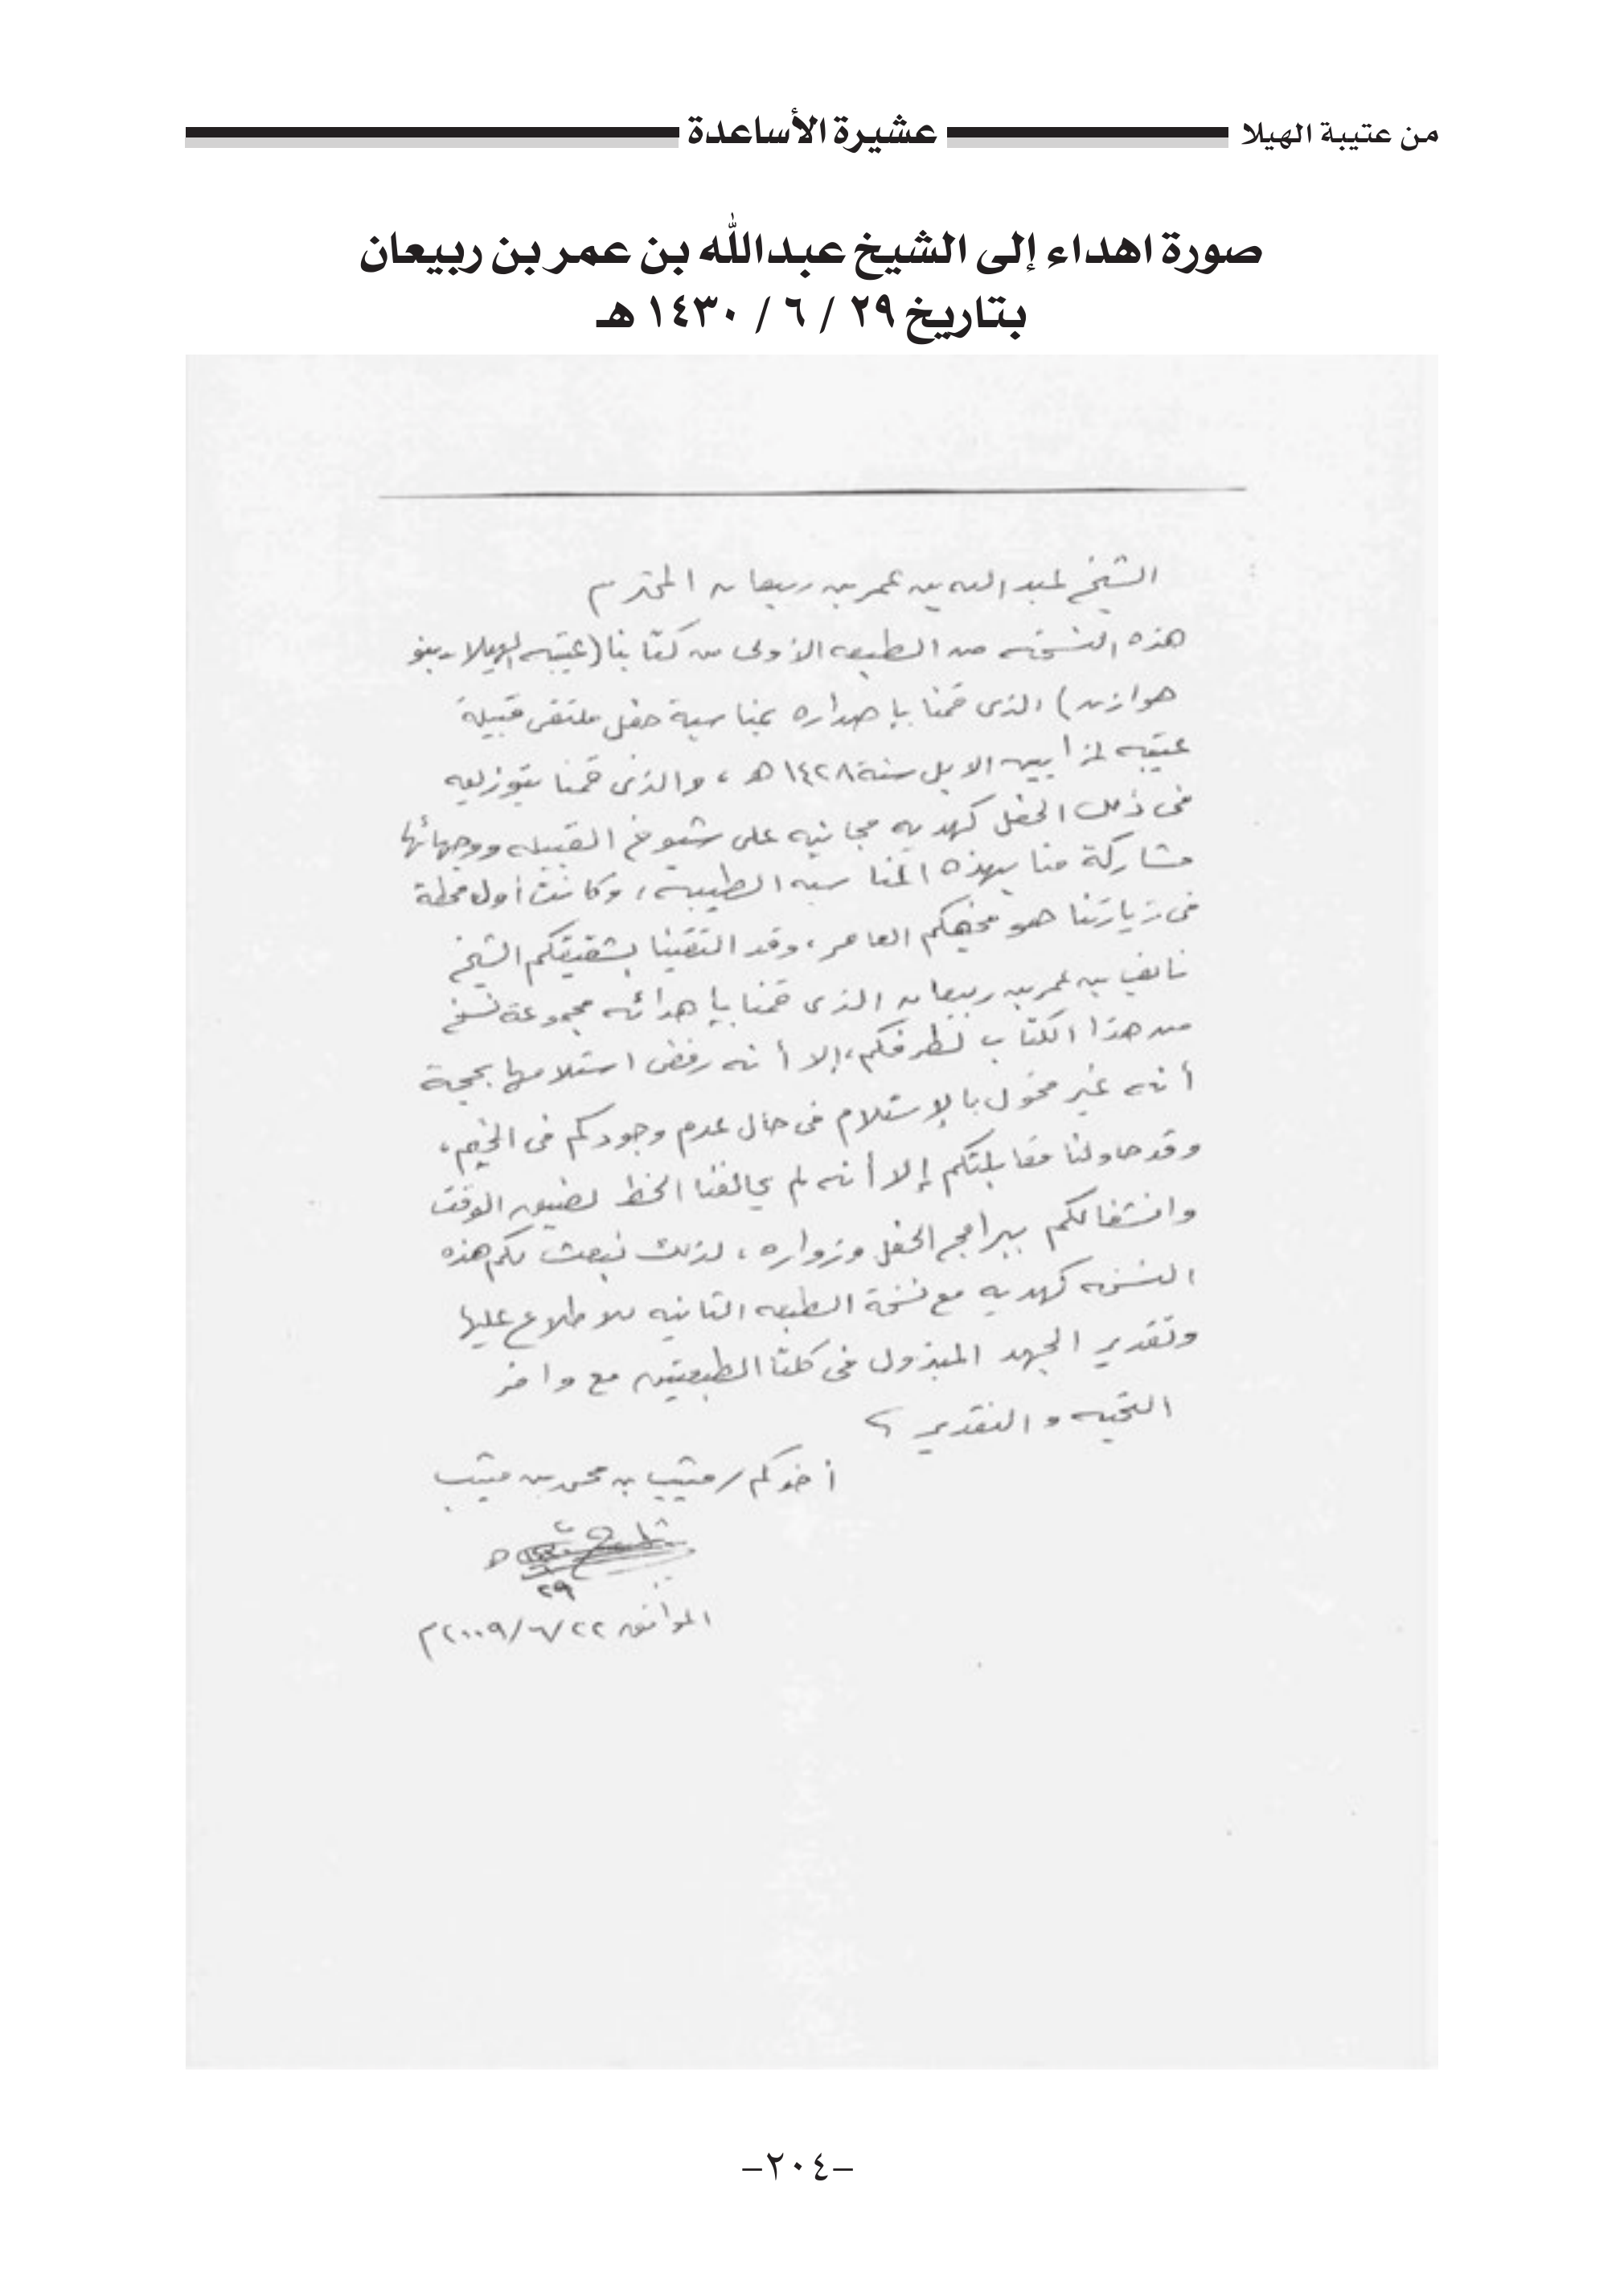 من عتيبة الهيلا
عشيرة الأساعدة
صورة اهداء إلى الشيخ عبدالله بن عمر بن ربيعان
بتاريخ ٢٩ / ٦ / ١٤٣٠ هـ
الشيخ عبدالله بن عمر بن ربيعان المحترم
هذه النسخه من الطبعه الأولى من كتابنا (عتيبه الهيلا - بنو
هوازن) الذى قمنا بإصداره بمناسبة حفل ملتقى قبيلة
عتيبه لمزايين الابل سنة ١٤٢٨هـ ، والذى قمنا بتوزيعه
فى ذلك الحفل كهديه مجانيه على شيوخ القبيله ووجهائها
مشاركة منا بهذه المناسبه الطيبه ، وكانت أول محطة
فى زيارتنا هو مخيمكم العامر ، وقد التقينا بشقيقكم الشيخ
نايف بن عمر بن ربيعان الذى قمنا بإهدائه مجموعة نسخ
من هذا الكتاب لطرفكم ، إلا أنه رفض استلامها بحجة
أنه غير مخول بالإستلام فى حال عدم وجودكم فى المخيم ،
وقد حاولنا مقابلتكم إلا أنه لم يحالفنا الحظ لضيق الوقت
وانشغالكم ببرامج الحفل وزواره ، لذلك نبعث لكم هذه
النسخه كهديه مع نسخة الطبعه الثانيه للاطلاع عليها
وتقدير الجهد المبذول فى كلتا الطبعتين مع وافر
التحيه والتقدير ،
أخوكم / متيب بن محمد بن متيب
٢٩
الموافق ٢٢/٦/٢٠٠٩م
-٢٠٤-